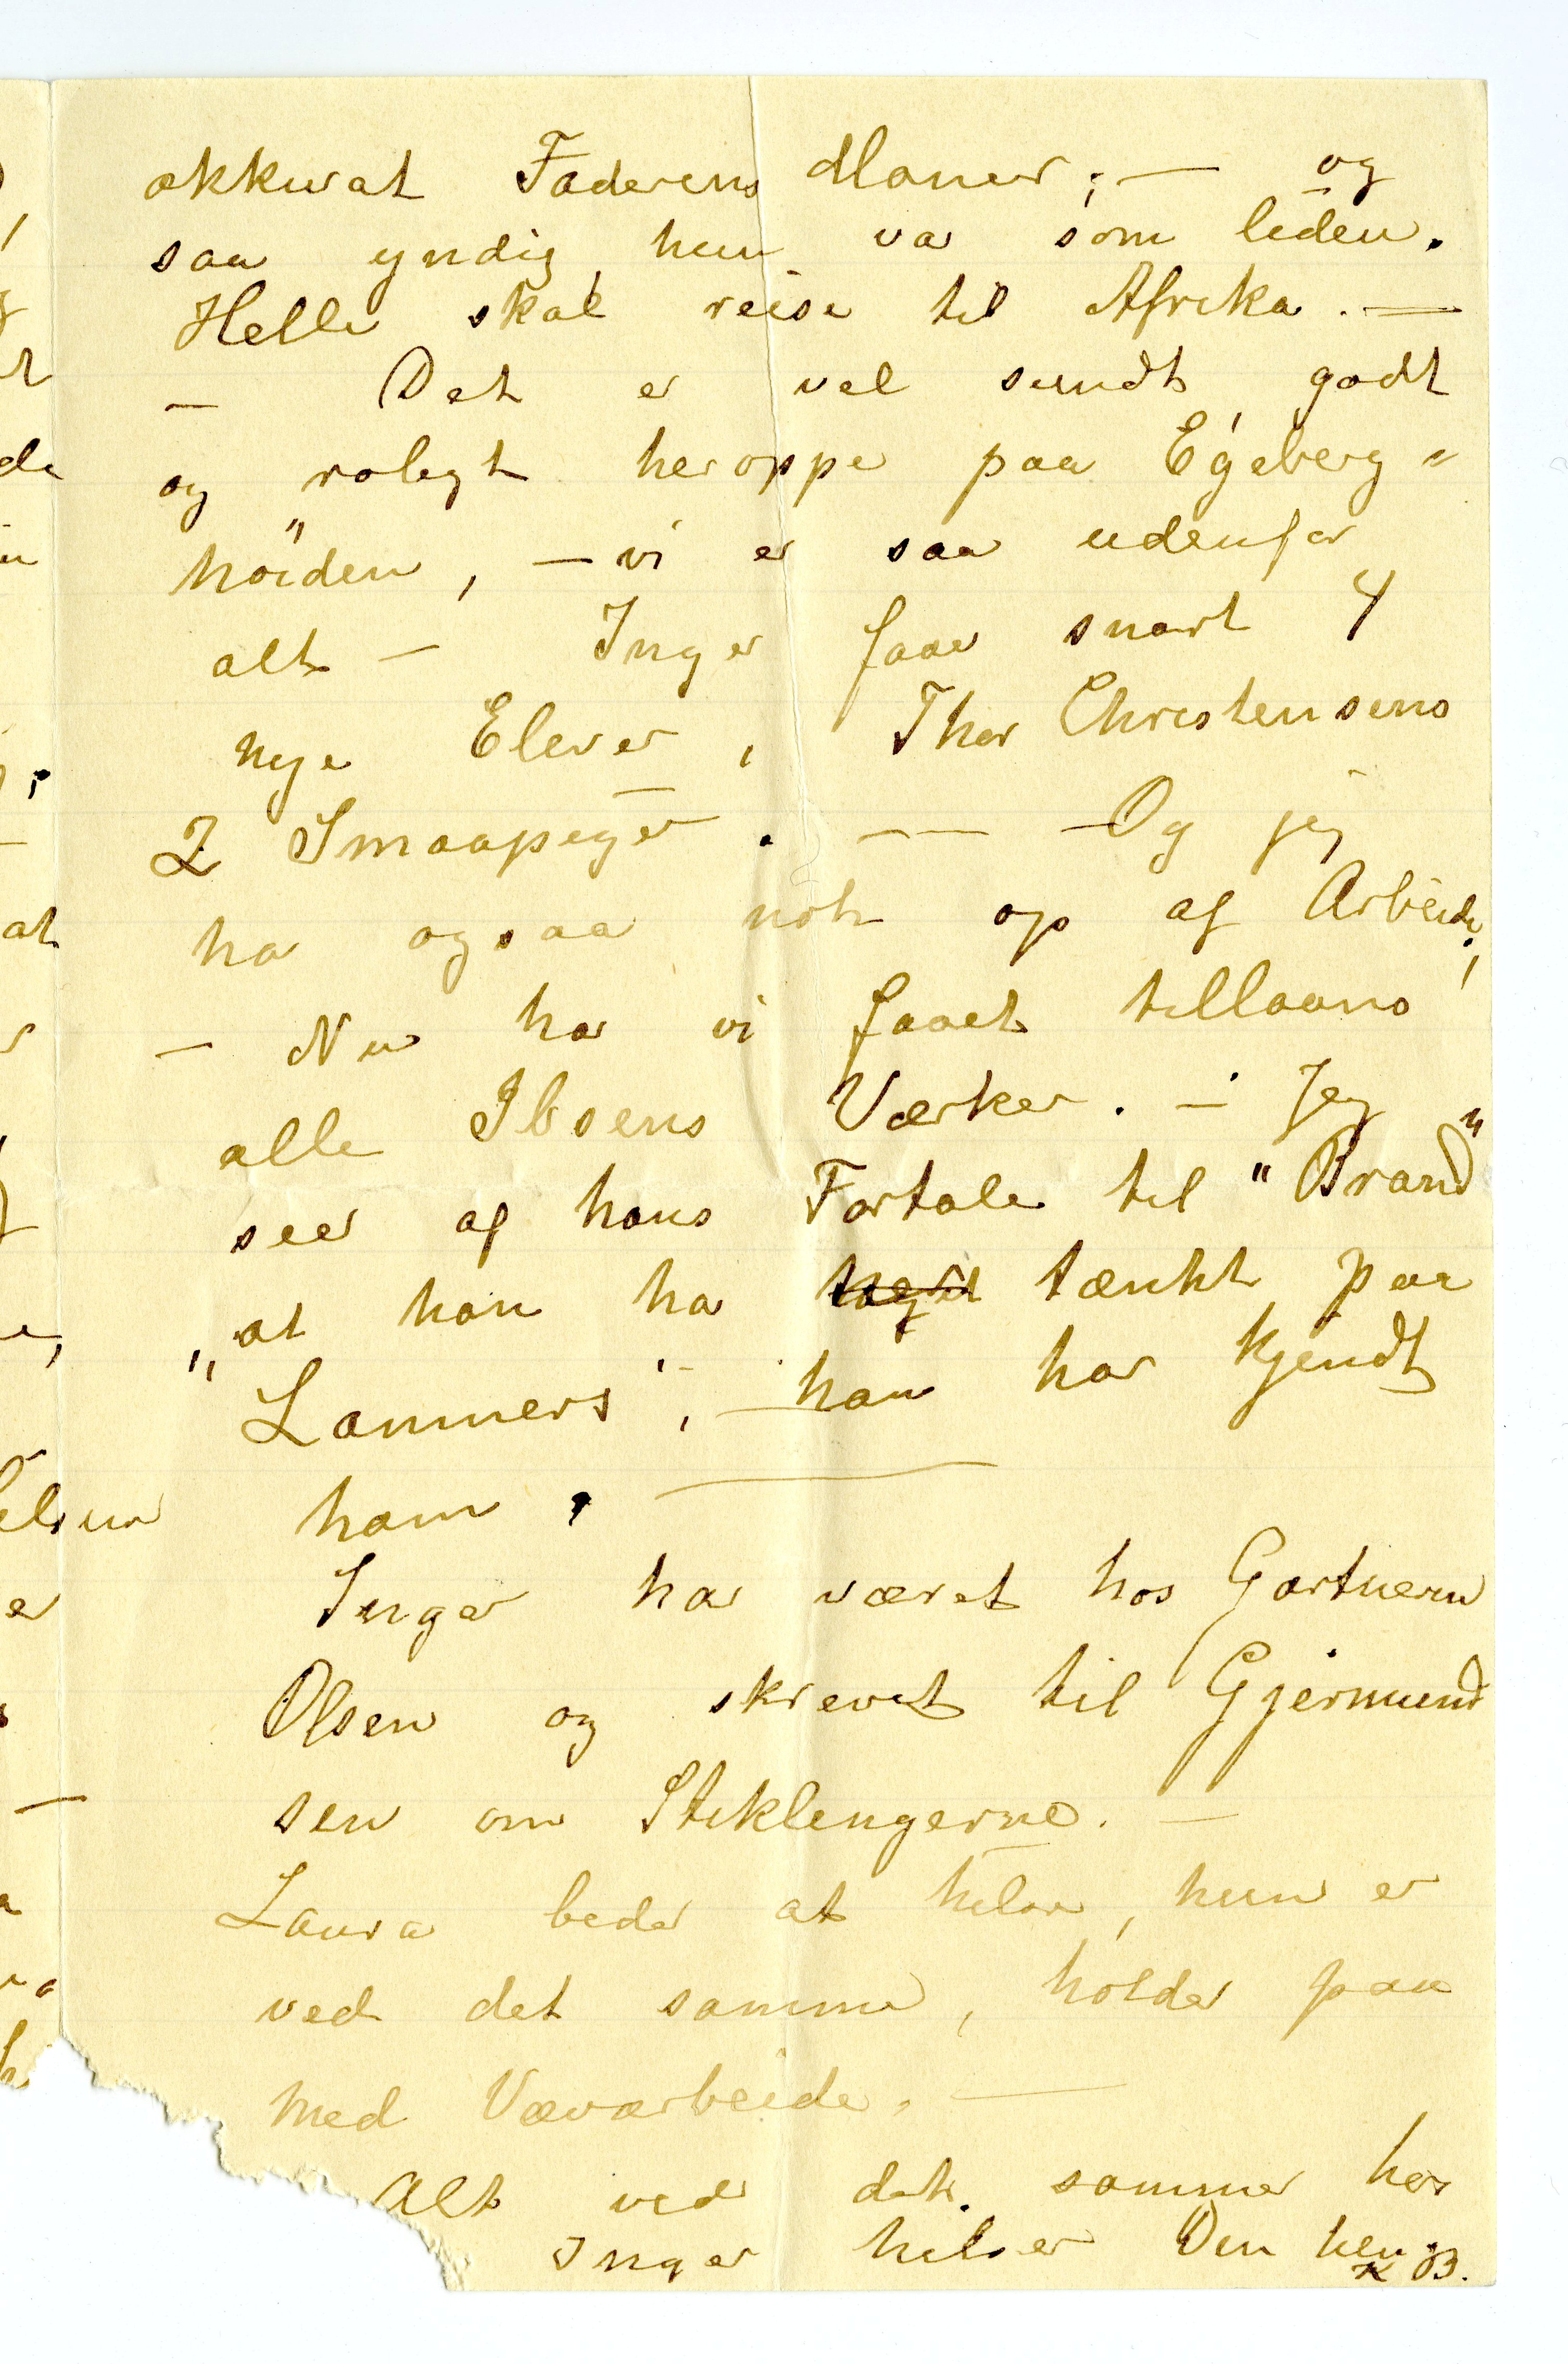 akkurat Faderens Maner; — og
saa yndig hun va som liden.
Helli skal reise til Afrika. —
— Det er vel sundt, godt
og roligt heroppe paa Egeberg-
höiden, — vi er saa udenfor
alt — Inger faar snart 4
nye Elever, Thor Christensens
2 Smaapeger. — — Og jeg
ha ogsaa nok op af Arbeide;
— Nu har vi faaet tillaans
alle Ibsens Værker. — Jeg
seer af hans Fortale til "Brand"
"at han ha tænkt paa
Lammers", — han har kjendt
ham. —
Inger har været hos Gartneren
Olsen og skrevet til Gjermund
sen om Stiklingerne. —
Laura beder at hilse, hun er
ved det samme, holder paa
med Vævarbeide. —
Alt ved det samme her
Inger hilser Din hen
K B.